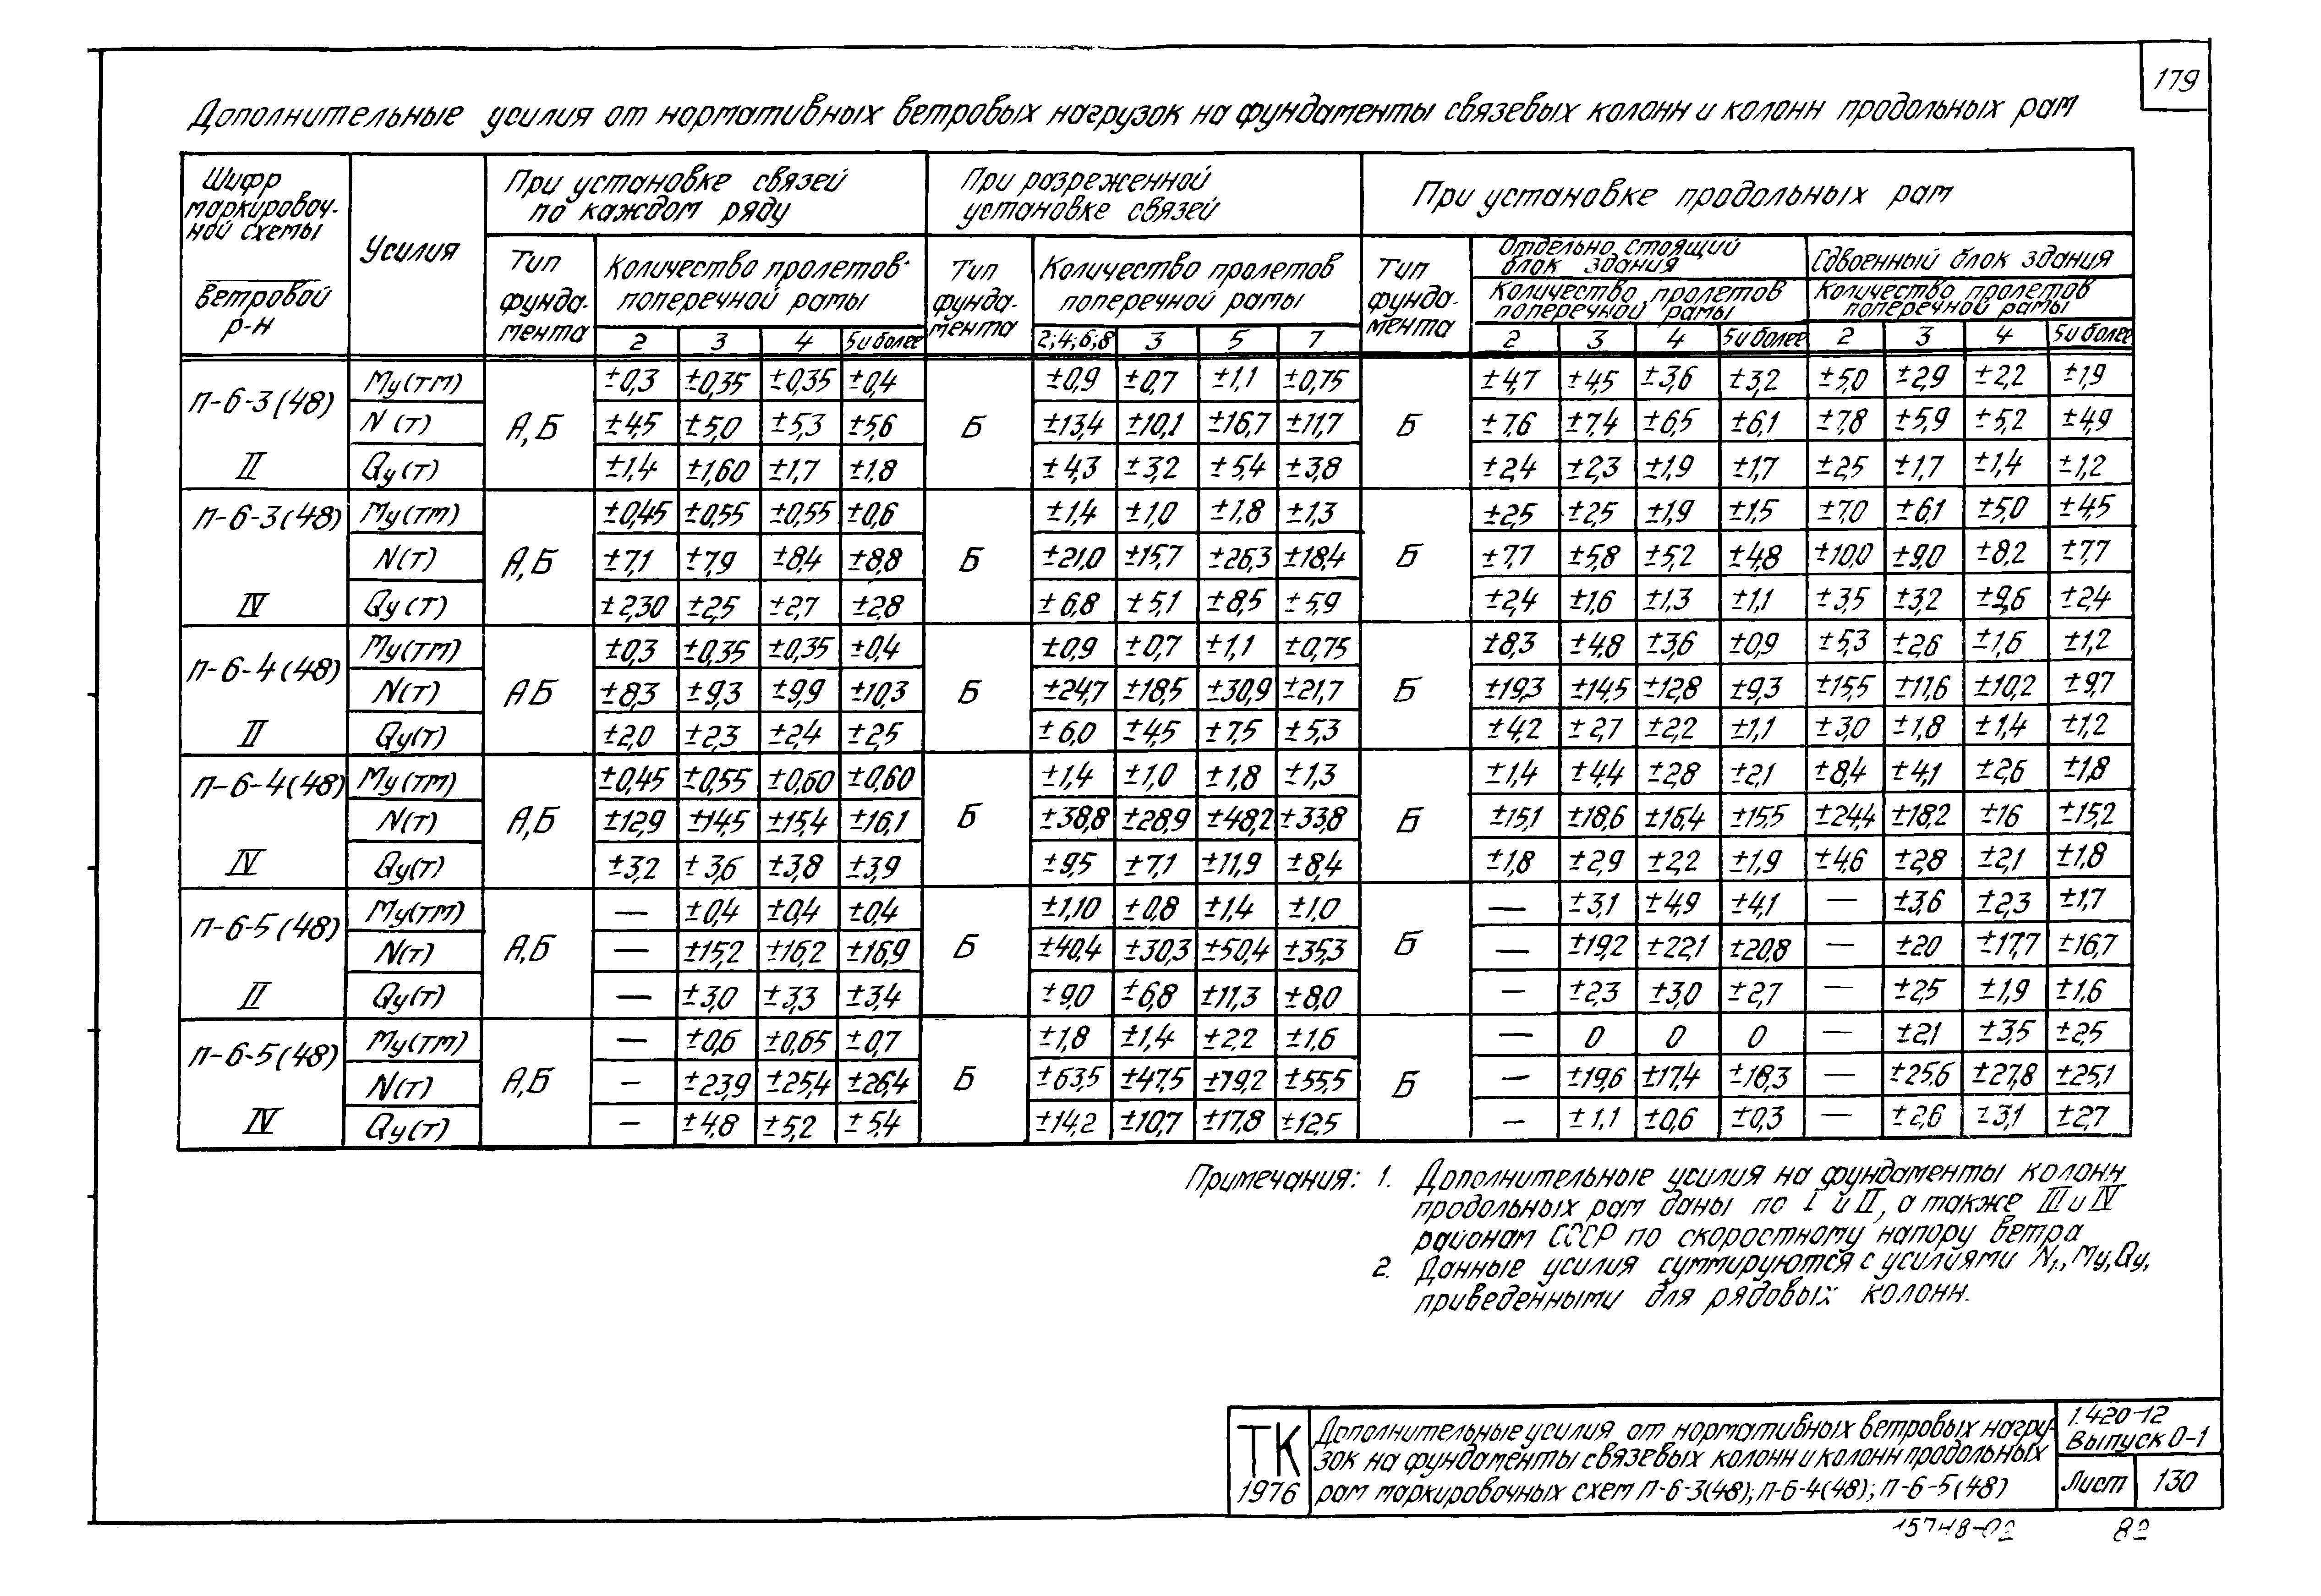 179
Дополнительные усилия от нормативных ветровых нагрузок на фундаменты связевых колонн и колонн продольных рам
Шифр маркировоч-ной схемы ветровой р-н | Усилия | При установке связей по каждом ряду | При разреженной установке связей | При установке продольных рам
Тип фунда-мента | Количество пролетов поперечной рамы | Тип фунда-мента | Количество пролетов поперечной рамы | Тип фунда-мента | Отдельно стоящий блок здания | Сдвоенный блок здания
Количество пролетов поперечной рамы | Количество пролетов поперечной рамы
2 | 3 | 4 | 5 и более | 2;4;6;8 | 3 | 5 | 7 | 2 | 3 | 4 | 5 и более | 2 | 3 | 4 | 5 и более
П-6-3(48) | Му(тм) | ±0,3 | ±0,35 | ±0,35 | ±0,4 | ±0,9 | ±0,7 | ±1,1 | ±0,75 | ±4,7 | ±4,5 | ±3,6 | ±3,2 | ±5,0 | ±2,9 | ±2,2 | ±1,9
N(т) | А,Б | ±4,5 | ±5,0 | ±5,3 | ±5,6 | Б | ±13,4 | ±10,1 | ±16,7 | ±11,7 | Б | ±7,6 | ±7,4 | ±6,5 | ±6,1 | ±7,8 | ±5,9 | ±5,2 | ±4,9
II | Qу(т) | ±1,4 | ±1,60 | ±1,7 | ±1,8 | ±4,3 | ±3,2 | ±5,4 | ±3,8 | ±2,4 | ±2,3 | ±1,9 | ±1,7 | ±2,5 | ±1,7 | ±1,4 | ±1,2
П-6-3(48) | Му(тм) | ±0,45 | ±0,55 | ±0,55 | ±0,6 | ±1,4 | ±1,0 | ±1,8 | ±1,3 | ±2,5 | ±2,5 | ±1,9 | ±1,5 | ±7,0 | ±6,1 | ±5,0 | ±4,5
N(т) | А,Б | ±7,1 | ±7,9 | ±8,4 | ±8,8 | Б | ±21,0 | ±15,7 | ±26,3 | ±18,4 | Б | ±7,7 | ±5,8 | ±5,2 | ±4,8 | ±10,0 | ±9,0 | ±8,2 | ±7,7
IV | Qу(т) | ±2,30 | ±2,5 | ±2,7 | ±2,8 | ±6,8 | ±5,1 | ±8,5 | ±5,9 | ±2,4 | ±1,6 | ±1,3 | ±1,1 | ±3,5 | ±3,2 | ±2,4
П-6-4(48) | Му(тм) | ±0,3 | ±0,35 | ±0,35 | ±0,4 | ±0,9 | ±0,7 | ±1,1 | ±0,75 | ±8,3 | ±4,8 | ±3,6 | ±0,9 | ±5,3 | ±2,6 | ±1,6 | ±1,2
N(т) | А Б | ±8,3 | ±9,3 | ±9,9 | ±10,3 | Б | ±24,7 | ±18,5 | ±30,9 | ±21,7 | Б | ±19,3 | ±14,5 | ±12,8 | ±9,3 | ±15,5 | ±11,6 | ±10,2 | ±9,7
II | Qу(т) | ±2,0 | ±2,3 | ±2,4 | ±2,5 | ±6,0 | ±4,5 | ±7,5 | ±5,3 | ±4,2 | ±2,7 | ±2,2 | ±1,1 | ±3,0 | ±1,8 | ±1,4 | ±1,2
П-6-4(48) | Му(тм) | ±0,45 | ±0,55 | ±0,60 | ±0,60 | ±1,4 | ±1,0 | ±1,8 | ±1,3 | ±1,4 | ±4,4 | ±2,8 | ±2,1 | ±8,4 | ±4,1 | ±2,6 | ±1,8
N(т) | А,Б | ±12,9 | ±14,5 | ±15,4 | ±16,1 | Б | ±38,8 | ±28,9 | ±48,2 | ±33,8 | Б | ±15,1 | ±18,6 | ±16,4 | ±15,5 | ±24,4 | ±18,2 | ±16 | ±15,2
IV | Qу(т) | ±3,2 | ±3,6 | ±3,8 | ±3,9 | ±9,5 | ±7,1 | ±11,9 | ±8,4 | ±1,8 | ±2,9 | ±2,2 | ±1,9 | ±4,6 | ±2,8 | ±2,1 | ±1,8
П-6-5(48) | Му(тм) | — | ±0,4 | ±0,4 | ±0,4 | ±1,10 | ±0,8 | ±1,4 | ±1,0 | — | ±3,1 | ±4,9 | ±4,1 | — | ±3,6 | ±2,3 | ±1,7
N(т) | А,Б | — | ±15,2 | ±16,2 | ±16,9 | Б | ±40,4 | ±30,3 | ±50,4 | ±35,3 | Б | — | ±19,2 | ±22,1 | ±20,8 | — | ±20 | ±17,7 | ±16,7
II | Qу(т) | — | ±3,0 | ±3,3 | ±3,4 | ±9,0 | ±6,8 | ±11,3 | ±8,0 | — | ±2,3 | ±3,0 | ±2,7 | — | ±2,5 | ±1,9 | ±1,6
П-6-5(48) | Му(тм) | — | ±0,6 | ±0,65 | ±0,7 | ±1,8 | ±1,4 | ±2,2 | ±1,6 | — | 0 | 0 | 0 | — | ±2,1 | ±3,5 | ±2,5
N(т) | А,Б | — | ±23,9 | ±25,4 | ±26,4 | Б | ±63,5 | ±47,5 | ±79,2 | ±55,5 | Б | — | ±19,6 | ±17,4 | ±18,3 | — | ±25,6 | ±27,8 | ±25,1
IV | Qу(т) | — | ±4,8 | ±5,2 | ±5,4 | ±14,2 | ±10,7 | ±17,8 | ±12,5 | — | ±1,1 | ±0,6 | ±0,3 | — | ±2,6 | ±3,1 | ±2,7
Примечания: 1. Дополнительные усилия на фундаменты колонн
продольных рам даны по I и II, а также III и IV
районам СССР по скоростному напору ветра
2. Данные усилия суммируются с усилиями N1, Му, Qу,
приведенными для рядовых колонн.
ТК
1976
Дополнительные усилия от нормативных ветровых нагру-
зок на фундаменты связевых колонн и колонн продольных
рам маркировочных схем П-6-3(48); П-6-4(48); П-6-5(48)
1.420-12
Выпуск 0-1
Лист 130
15748-02